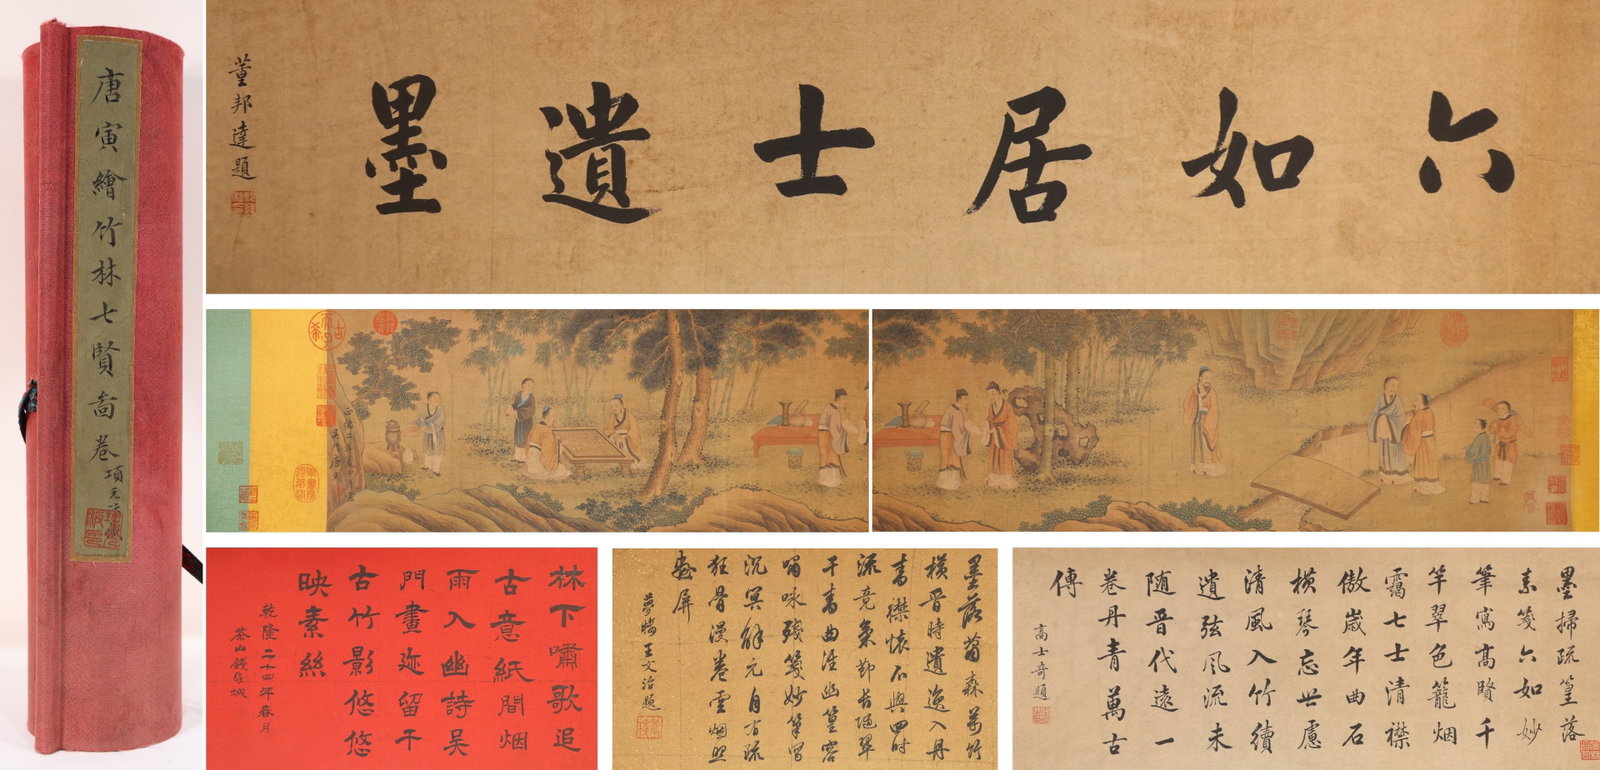 唐寅繪竹林七賢啚卷
項元
六如居士遺墨
董邦達題
林下嘯歌追
古意紙間烟
雨入幽詩吴
門畫迹留千
古竹影悠悠
映素絲
乾隆二十四年春月
茶山錢維城
墨落蕭森萬竹
橫晋時遺逸入丹
青襟懷石與四時
流竞氣節長隨翠
干青曲涯幽篁容
嘯咏殘箋妙筆寫
沉冥解元自有疏
狂骨漫卷雲烟照
畫屏
夢樓王文治題
墨掃疏篁落
素箋六如妙
筆寫高賢千
竿翠色籠烟
靄七士清襟
傲歲年曲石
橫琴忘世慮
清風入竹續
遺弦風流未
随晋代遠一
卷丹青萬古
傳
高士奇題